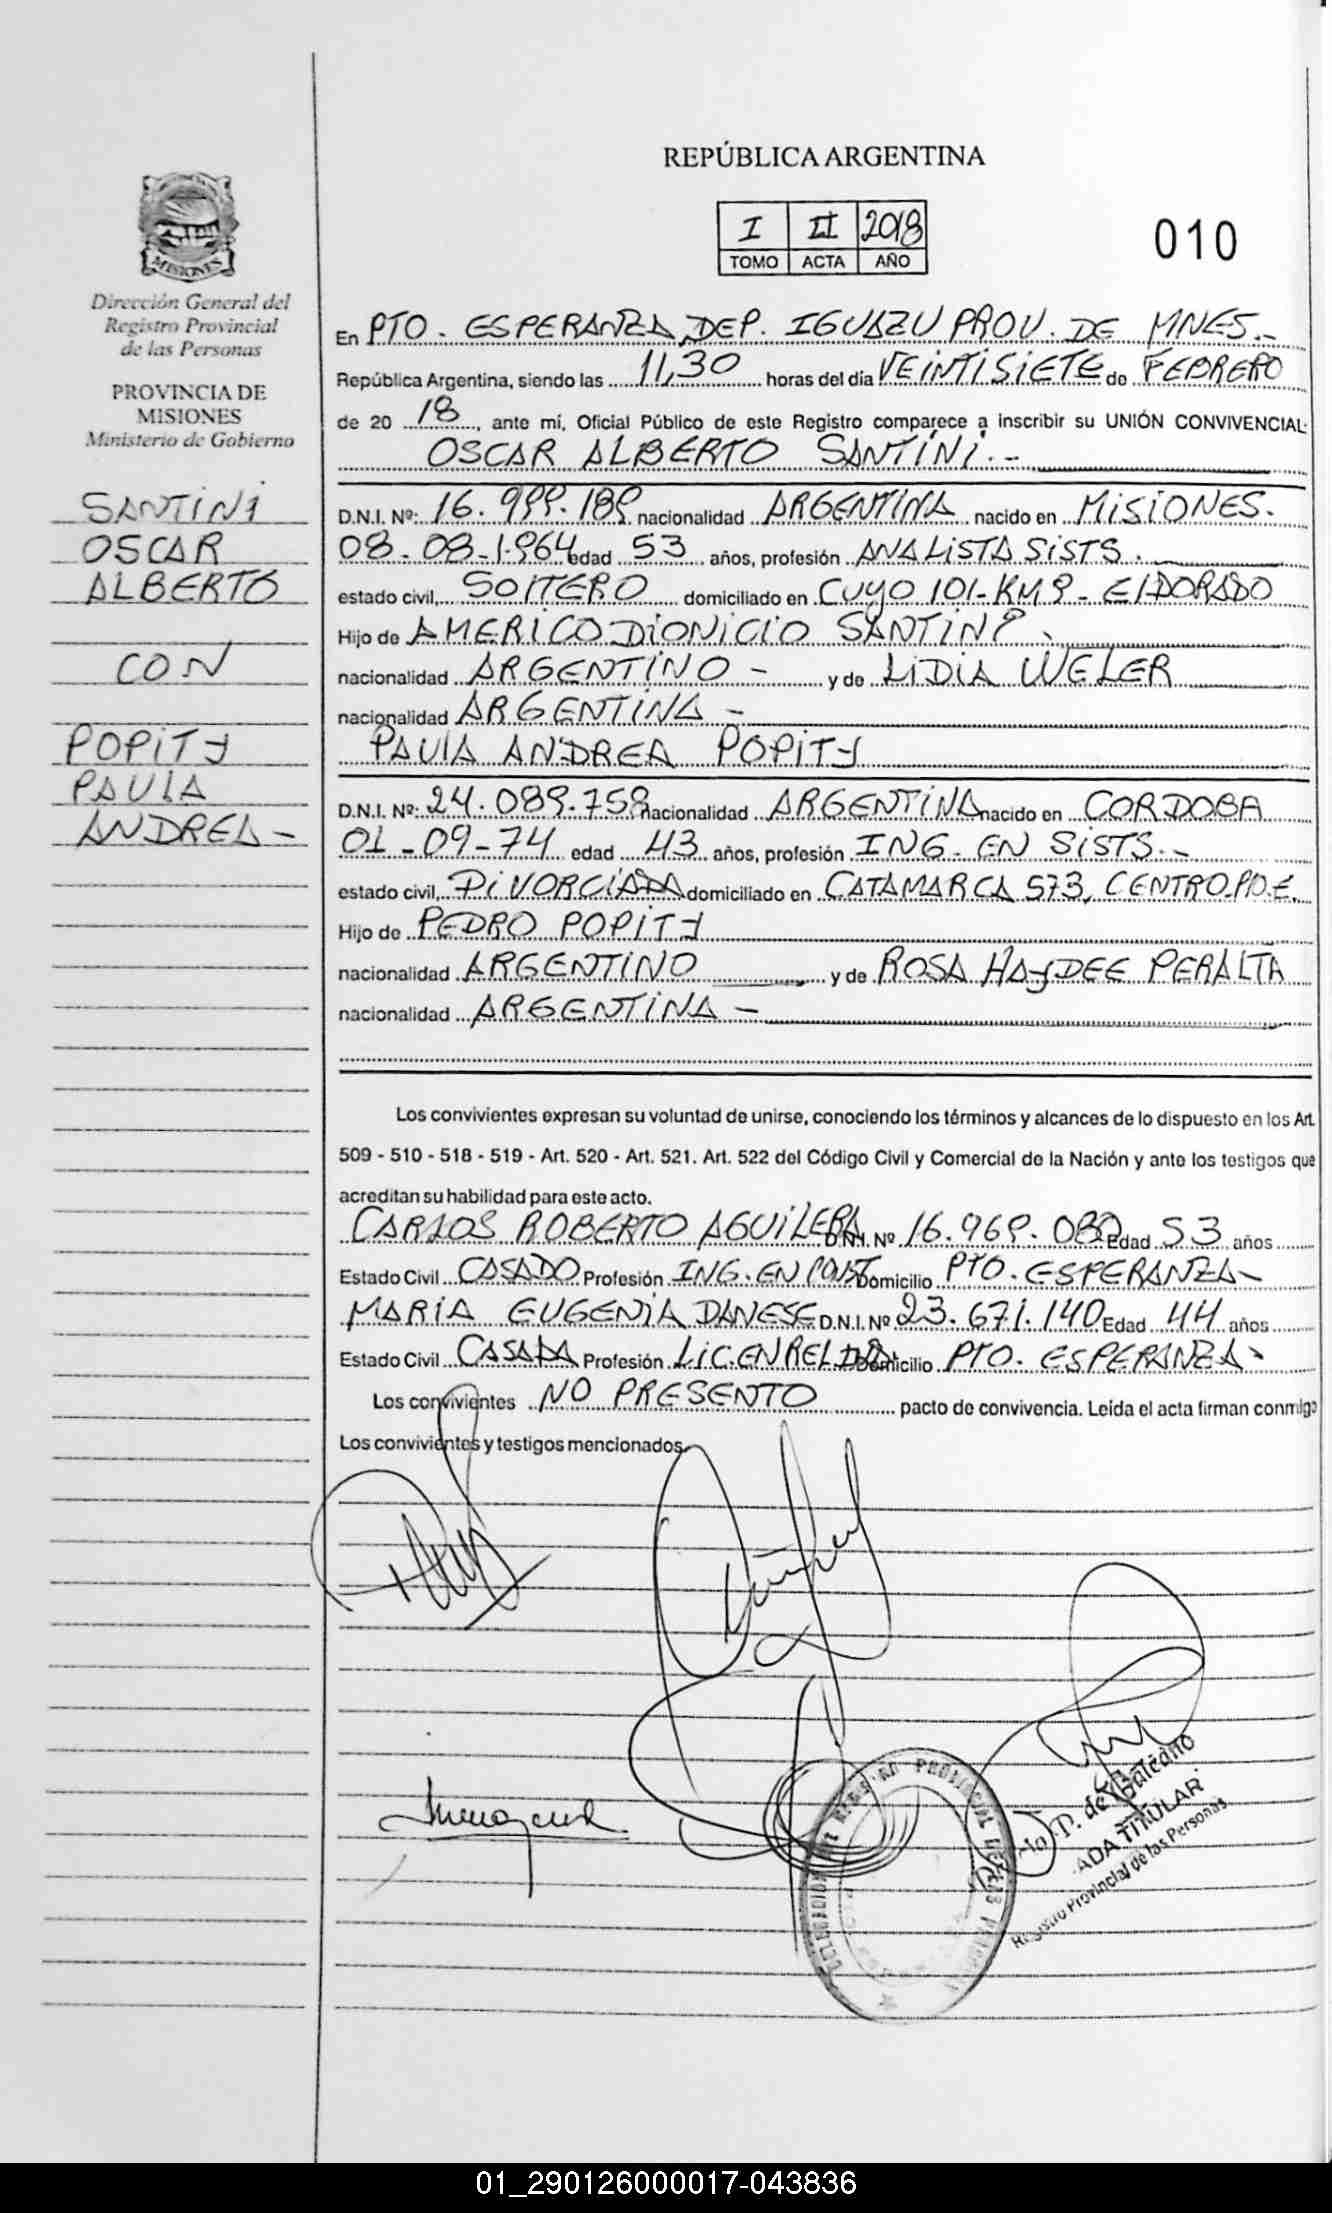 REPÚBLICA ARGENTINA
I II 2018
TOMO ACTA AÑO
010
MISIONES
Dirección General del
Registro Provincial
de las Personas
PROVINCIA DE
MISIONES
Ministerio de Gobierno
SANTINI
OSCAR
ALBERTO
CON
POPITY
PAULA
ANDREA -
En PTO. ESPERANZA, DEP. IGUAZU PROV. DE MNES.-
República Argentina, siendo las 11,30 horas del día VEINTISIETE de FEBRERO
de 20 18, ante mí, Oficial Público de este Registro comparece a inscribir su UNIÓN CONVIVENCIAL:
OSCAR ALBERTO SANTINI.-
D.N.I. Nº: 16.999.189 nacionalidad ARGENTINA nacido en MISIONES.
08-08-1964 edad 53 años, profesión ANALISTA SISTS.
estado civil, SOLTERO domiciliado en CUYO 101-KM 9- ELDORADO
Hijo de AMERICO DIONICIO SANTINI
nacionalidad ARGENTINO - y de LIDIA WELER
nacionalidad ARGENTINA -
PAULA ANDREA POPITY
D.N.I. Nº: 24.089.758 nacionalidad ARGENTINA nacido en CORDOBA
01-09-74 edad 43 años, profesión ING. EN SISTS.-
estado civil, DIVORCIADA domiciliado en CATAMARCA 573, CENTRO.P.D.E.
Hijo de PEDRO POPITY
nacionalidad ARGENTINO y de ROSA HAYDEE PERALTA
nacionalidad ARGENTINA -
Los convivientes expresan su voluntad de unirse, conociendo los términos y alcances de lo dispuesto en los Art.
509 - 510 - 518 - 519 - Art. 520 - Art. 521. Art. 522 del Código Civil y Comercial de la Nación y ante los testigos que
acreditan su habilidad para este acto.
CARLOS ROBERTO AGUILERA D.N.I. Nº 16.969.080 Edad 53 años
Estado Civil CASADO Profesión ING. EN CONST Domicilio PTO. ESPERANZA-
MARIA EUGENIA DANESE D.N.I. Nº 23.671.140 Edad 44 años
Estado Civil CASADA Profesión LIC. EN REL Domicilio PTO. ESPERANZA-
Los convivientes NO PRESENTO pacto de convivencia. Leída el acta firman conmigo
Los convivientes y testigos mencionados.
de Galeano
ADA TITULAR
Registro Provincial de las Personas
01_290126000017-043836